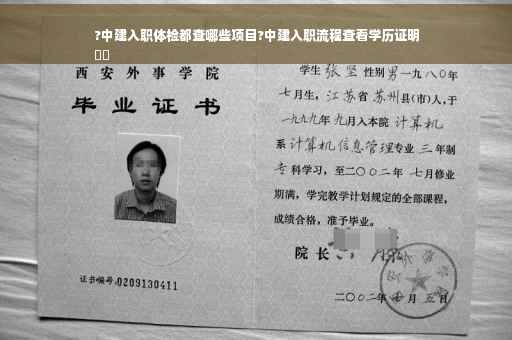 ?中建入职体检都查哪些项目?中建入职流程查看学历证明
西安外事学院
毕业证书
证书编号:0209130411
学生张坚性别男一九八〇年
七月生，江苏省苏州县(市)人，于
一九九九年九月入本院计算机
系计算机信息管理专业三年制
专科学习，至二〇〇二年七月修业
期满，学完教学计划规定的全部课程，
成绩合格，准予毕业。
院长
二〇〇二年七月五日